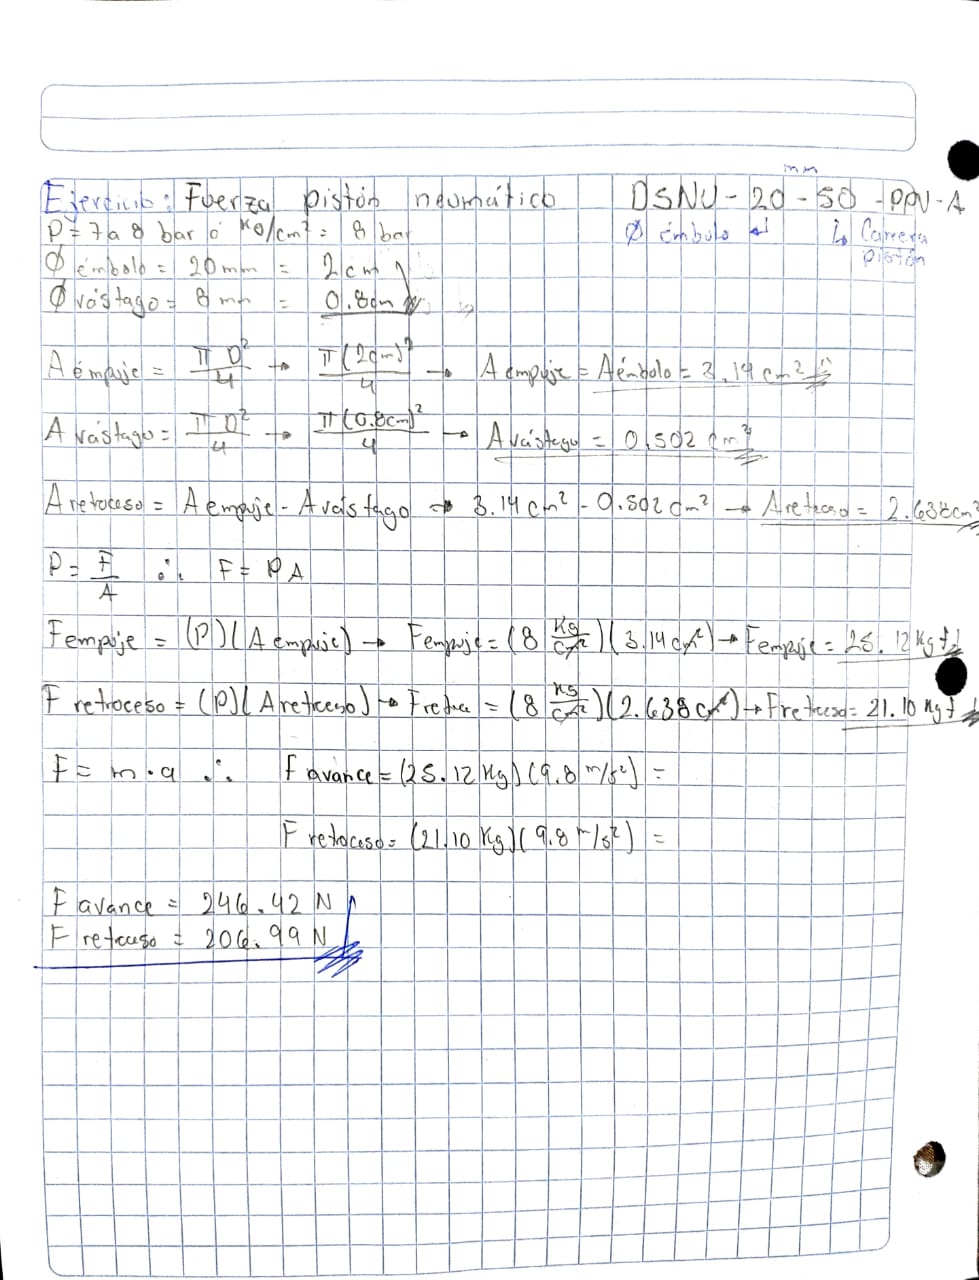 mm
Ejercicio: Fuerza pistón neumático DSNU - 20 - 50 - PPV - A
P = 7 a 8 bar ó Kg/cm² = 8 bar Ø émbolo ↲ ↳ Carrera
Ø émbolo = 20mm = 2cm pistón
Ø vástago = 8 mm = 0.8cm
A empuje = π D²/4 → π(2cm)²/4 → A empuje = A émbolo = 3.14 cm²
A vástago = π D²/4 → π(0.8cm)²/4 → A vástago = 0.502 cm²
A retoceso = A empuje - A vástago → 3.14 cm² - 0.502 cm² → A retroceso = 2.638cm²
P = F/A ∴ F = P A
F empuje = (P)(A empuje) → F empuje = (8 Kg/cm²)(3.14 cm²) → F empuje = 25.12 Kg f
F retroceso = (P)(A retroceso) → F retroce = (8 Kg/cm²)(2.638 cm²) → F retroceso = 21.10 Kg f
F = m·a ∴ F avance = (25.12 Kg)(9.8 m/s²) =
F retroceso = (21.10 Kg)(9.8 m/s²) =
F avance = 246.42 N
F retroceso = 206.99 N